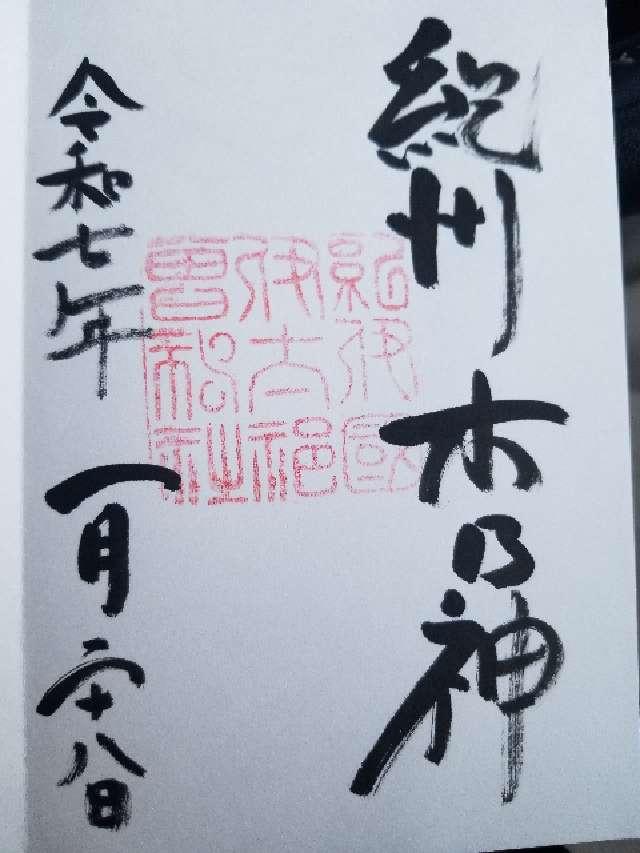 紀州 木乃神
紀伊國
伊太祁
曽神社
令和七年 一月二十八日